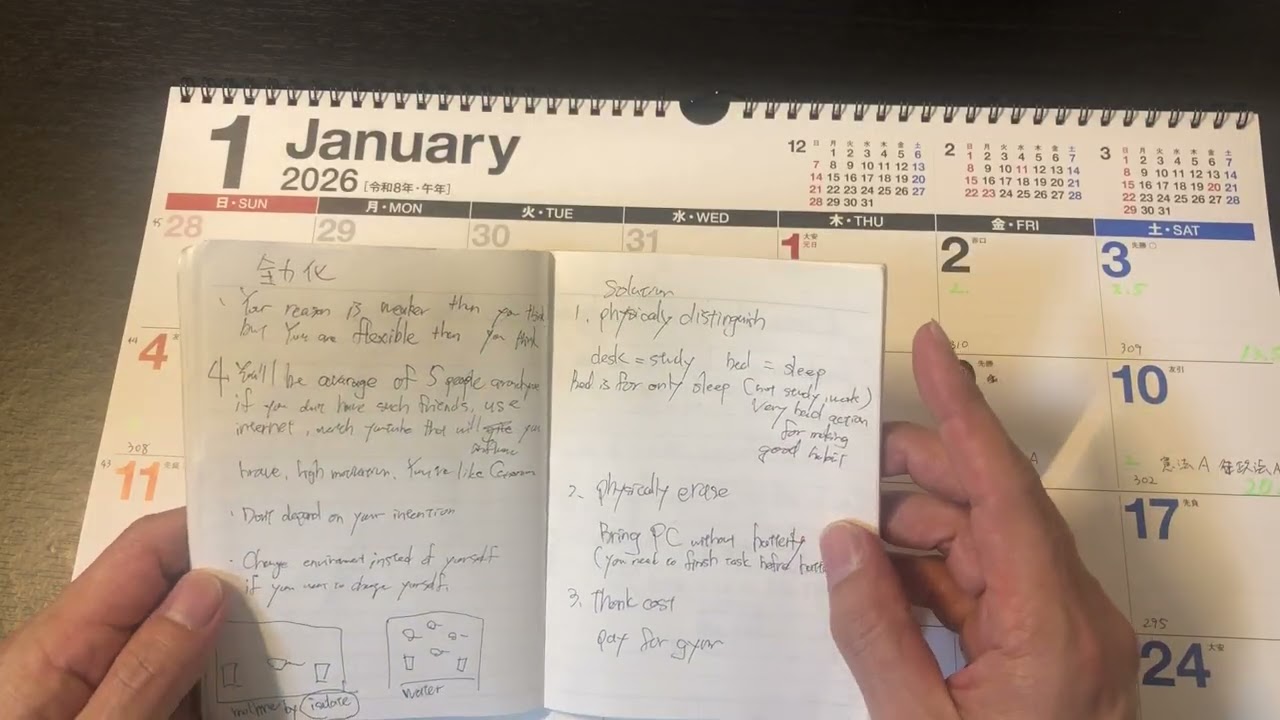 1 January
2026 [令和8年・午年]
12 日 月 火 水 木 金 土
1 2 3 4 5 6
7 8 9 10 11 12 13
14 15 16 17 18 19 20
21 22 23 24 25 26 27
28 29 30 31
2 日 月 火 水 木 金 土
1 2 3 4 5 6 7
8 9 10 11 12 13 14
15 16 17 18 19 20 21
22 23 24 25 26 27 28
3 日 月 火 水 木 金 土
1 2 3 4 5 6 7
8 9 10 11 12 13 14
15 16 17 18 19 20 21
22 23 24 25 26 27 28
29 30 31
日・SUN 月・MON 火・TUE 水・WED 木・THU 金・FRI 土・SAT
28 29 30 31 1 大安 元日 2 赤口 3 先勝
2. 2.5
310 309
4 10 友引
308 憲法A 行政法A
302
11 先負 17 先負
295
24 大安
Your reason is weaker then you think
but You are flexible then you think
4 You'll be avarage of 5 people
if you don't have such friends, use
internet, watch youtube that will you
influence
brave, high motivation. You're like
・Don't depend on your intention
・Change enviroment instead of yourself
if you want to change yourself.
by isolate
water
Solution
1. physicaly distinguish
desk = study bed = sleep
bed is for only sleep (not study, work)
Very bad action
for making
good habit
2. physically erase
Bring PC without battery
(you need to finish task before
3. think cost
pay for gym